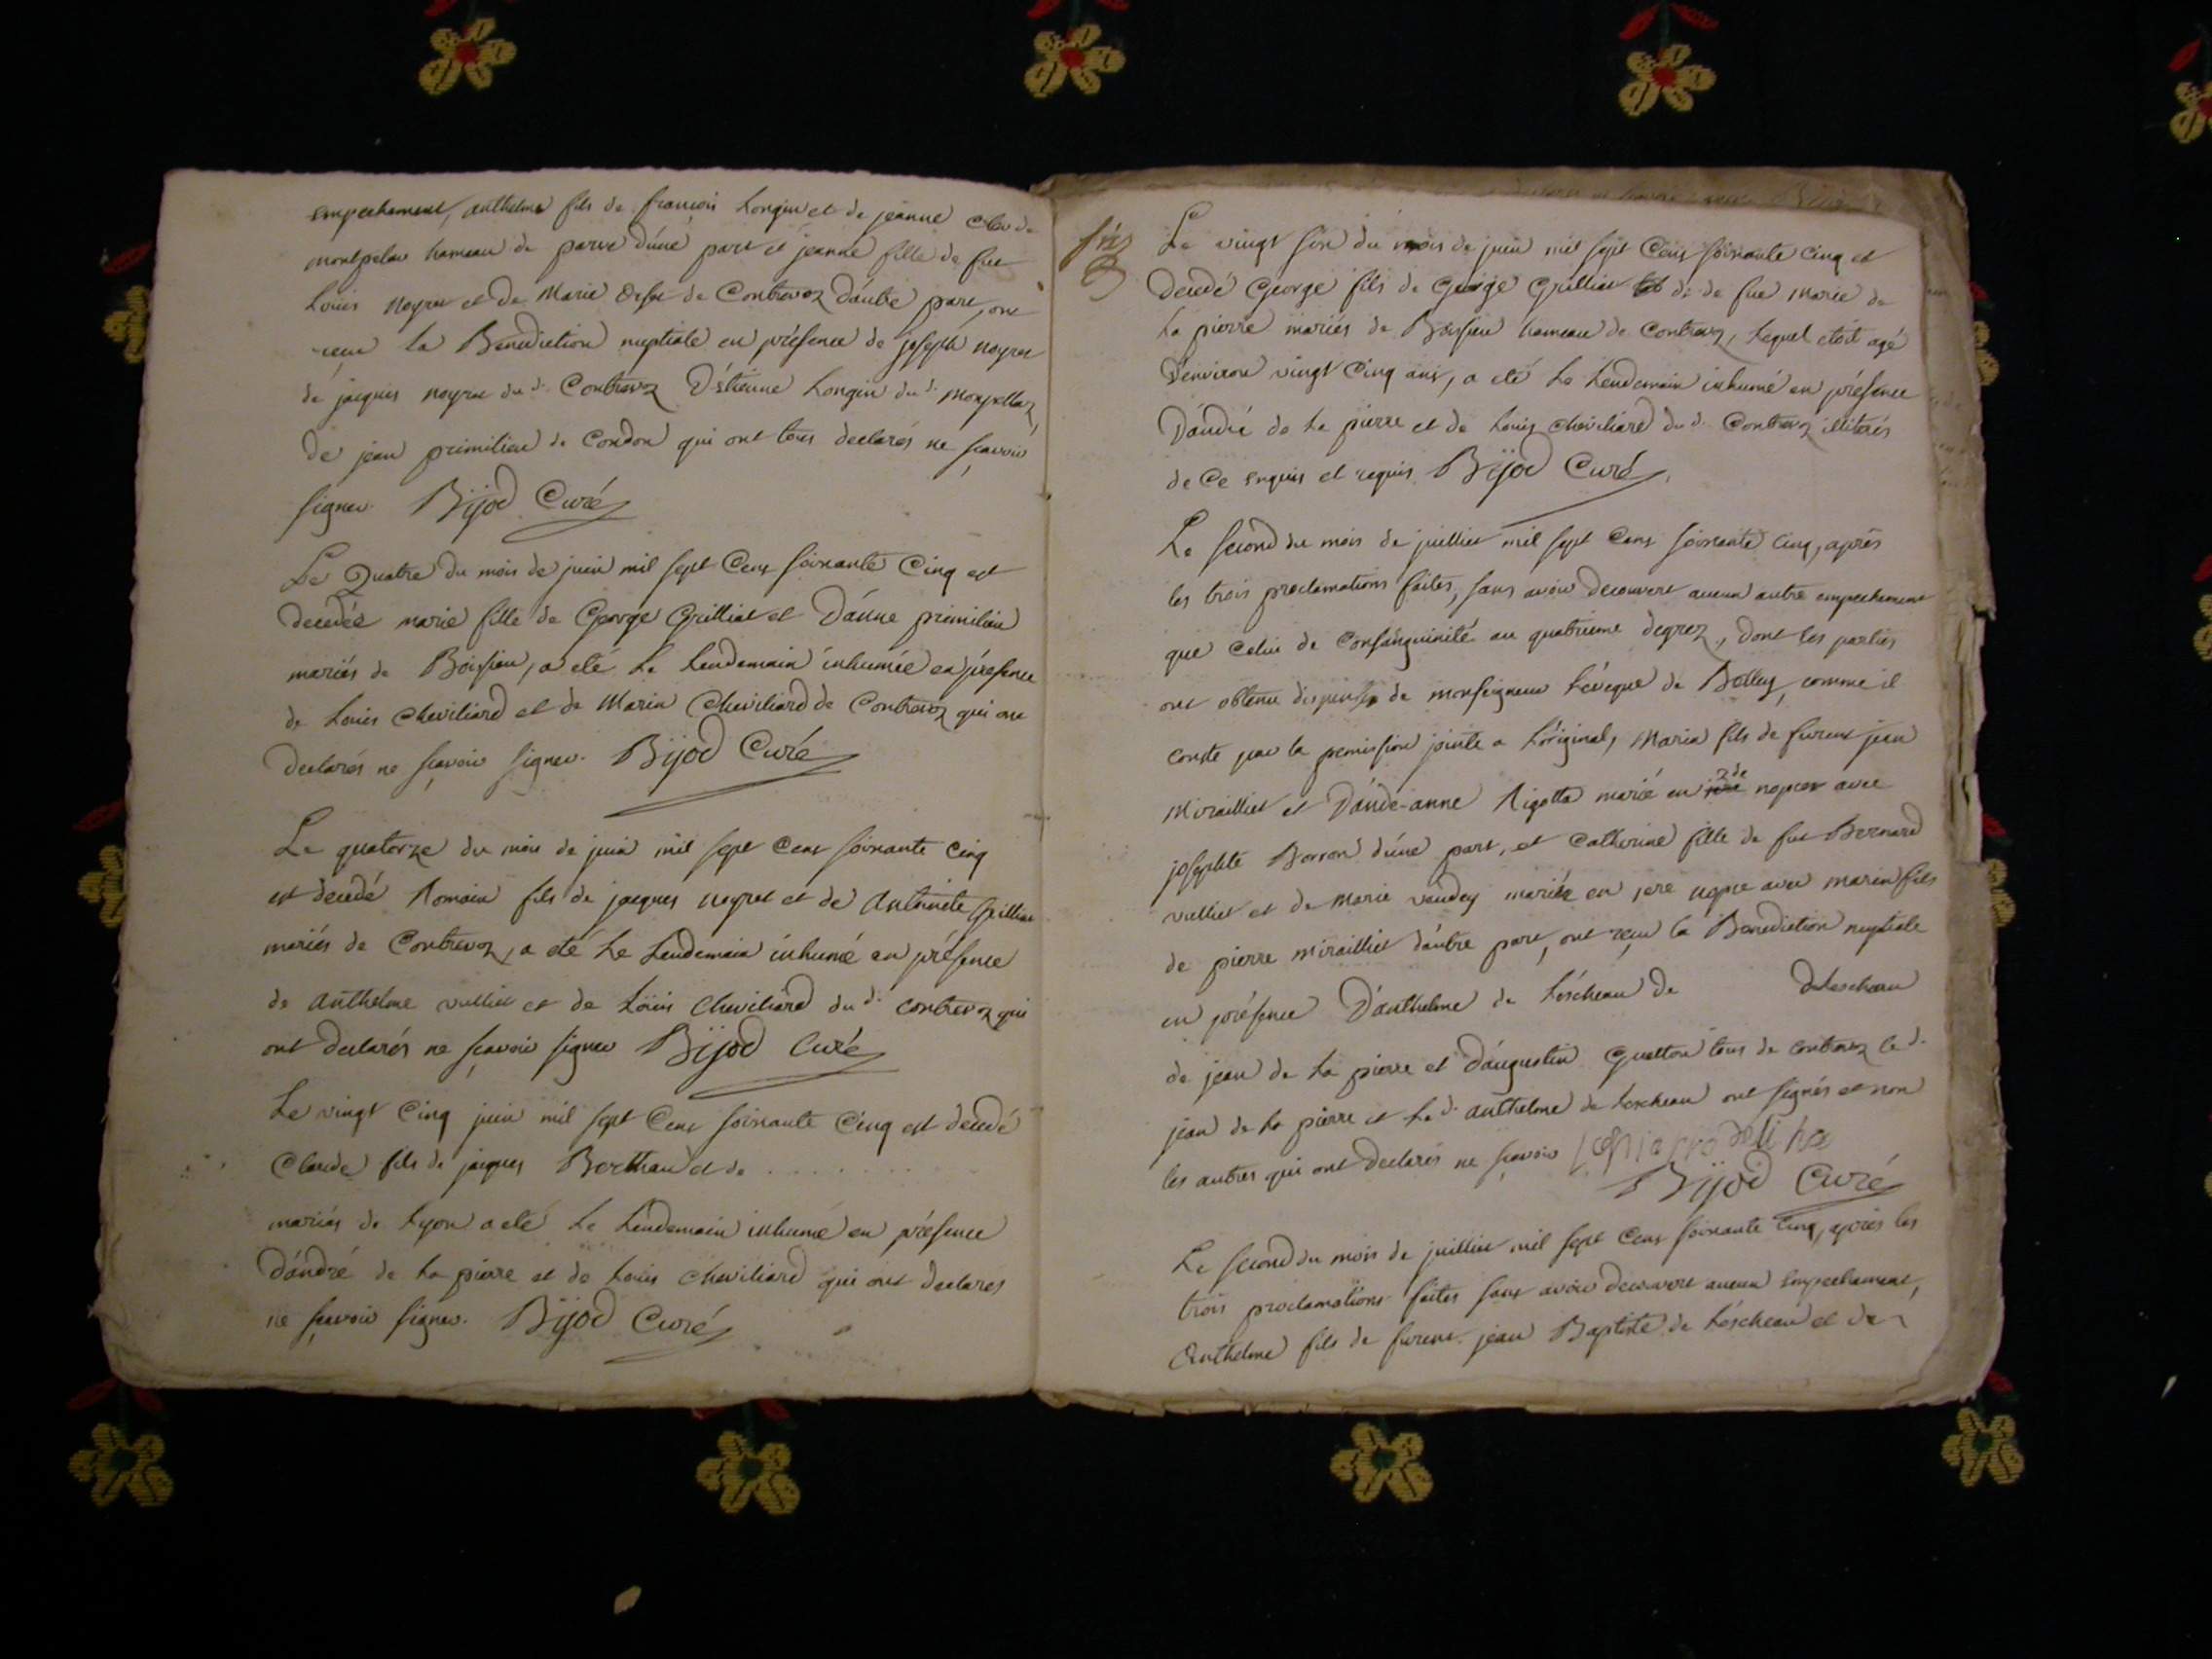 empechement, anthelme fils de francois Longin et de jeanne
montpelaz hameau de parve d'une part et jeanne fille de fut
Louis noyret et de Marie de Contrevoz d'autre part, ont
reçu la Benediction nuptiale en présence de joseph noyret
de jacques noyret du d. Contrevoz D'étienne Longin du d.
de jean primilieu de Condon qui ont tous declarés ne sçavoir
signer. Bijod Curé
Le Quatre du mois de juin mil sept Cens soixante Cinq est
decedée marie fille de George Grilliet et D'anne primilieu
mariés de Boissieu, a eté Le Lendemain inhumée en présence
de Louis Cheviliard et de Marin Cheviliard de Contrevoz qui ont
declarés ne sçavoir signer. Bijod Curé
Le quatorze du mois de juin mil sept Cens soixante Cinq
est decedé Romain fils de jacques noyret et de Antoinete Grilliet
mariés de Contrevoz, a eté Le Lendemain inhumé en présence
de Anthelme vulliet et de Loüis Cheviliard du d. contrevoz qui
ont declarés ne sçavoir signer Bijod Curé
Le vingt Cinq juin mil sept Cens soixante Cinq est decedé
Claude fils de jacques Berthau et de . . . . . . . .
mariés de Lyon a eté Le Lendemain inhumé en présence
d'andré de La pierre et de Louis Cheviliard qui ont declares
ne sçavoir signer. Bijod Curé
Le vingt six du mois de juin mil sept Cens soixante Cinq est
decedé George fils de George Grilliet de fue Marie de
La pierre mariés de Boissieu hameau de Contrevoz, Lequel etoit agé
d'environ vingt Cinq ans, a eté Le Lendemain inhumé en présence
D'andré de La pierre et de Louis Cheviliard du d. Contrevoz illiterés
de Ce enquis et requis Bijod Curé
Le second du mois de juilliet mil sept Cens soixante Cinq, après
les trois proclamations faites, sans avoir decouvert aucun autre empechement
que celui de Consanguinité au quatrieme degrez, dont les parties
ont obtenu dispense de monseigneur L'éveque de Belley, comme il
conste par la permission jointe a L'original, Marin fils de furent jean
Miralliet et D'ande-anne Rigotta marié en 2de nopces avec
josephte Borron d'une part, et Catherine fille de fut Bernard
vulliet et de Marie vaudey mariée en 1ere nopce avec marin fils
de pierre miralliet d'autre part, ont reçu la Benediction nuptiale
en présence D'anthelme de Léscheau de deLescheau
de jean de La pierre et d'augustin Guetton tous de contrevoz le d.
jean de La pierre et Le d. anthelme de Lescheau ont signés et non
les autres qui ont declarés ne sçavoir
Bijod Curé
Le second du mois de juilliet mil sept Cens soixante Cinq, après les
trois proclamations faites sans avoir decouvert aucun empechement,
Anthelme fils de furent jean Baptiste de Léscheau et de